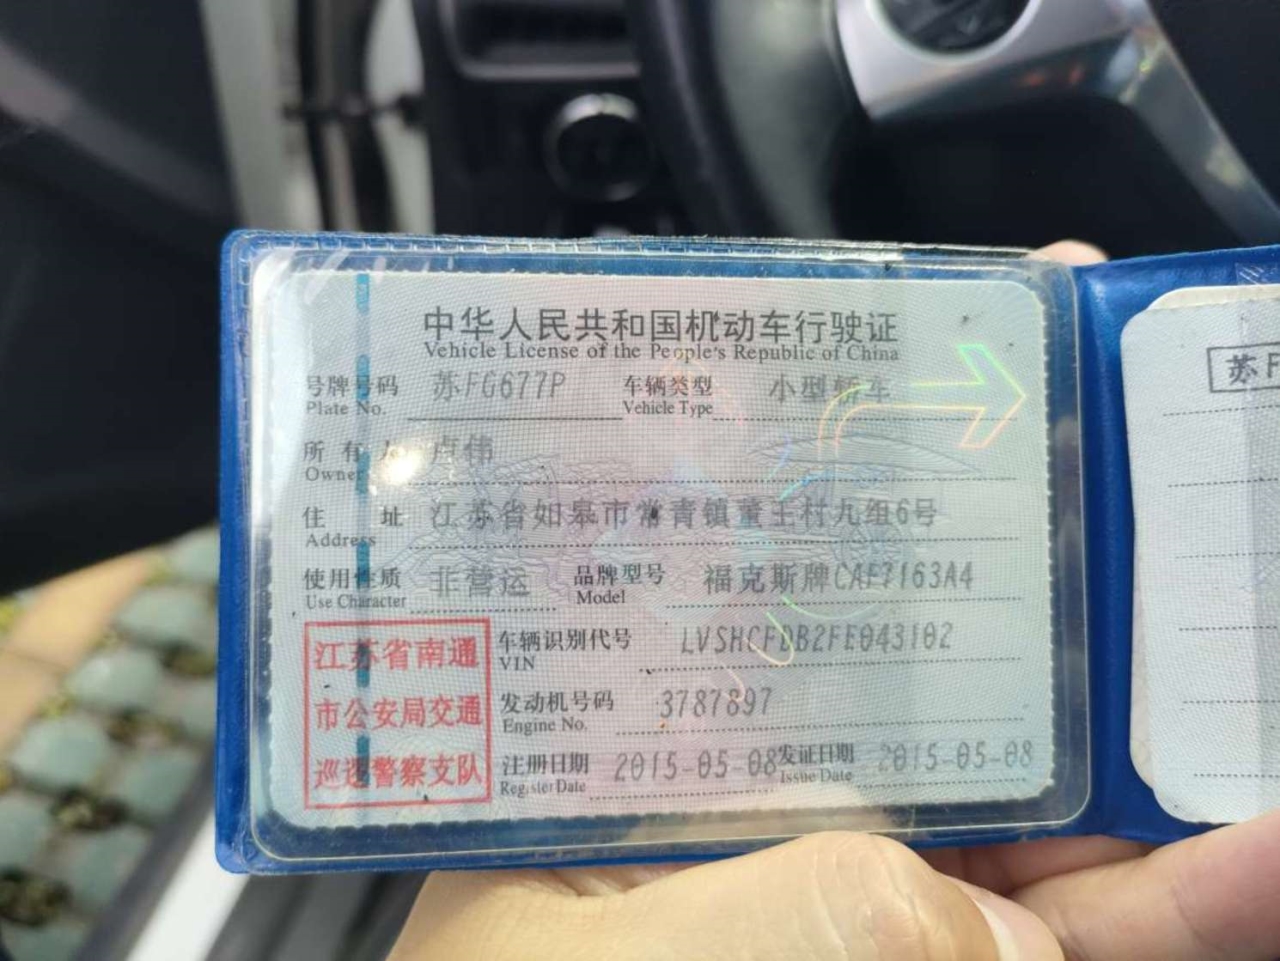 中华人民共和国机动车行驶证
Vehicle License of the People's Republic of China
号牌号码 苏FG677P 车辆类型 小型轿车
Plate No. Vehicle Type
所有人 卢伟
Owner
住址 江苏省如皋市常青镇董王村九组6号
Address
使用性质 非营运 品牌型号 福克斯牌CAF7163A4
Use Character Model
车辆识别代号 LVSHCFDB2FE043102
VIN
发动机号码 3787897
Engine No.
注册日期 2015-05-08 发证日期 2015-05-08
Register Date Issue Date
江苏省南通
市公安局交通
巡逻警察支队
苏F